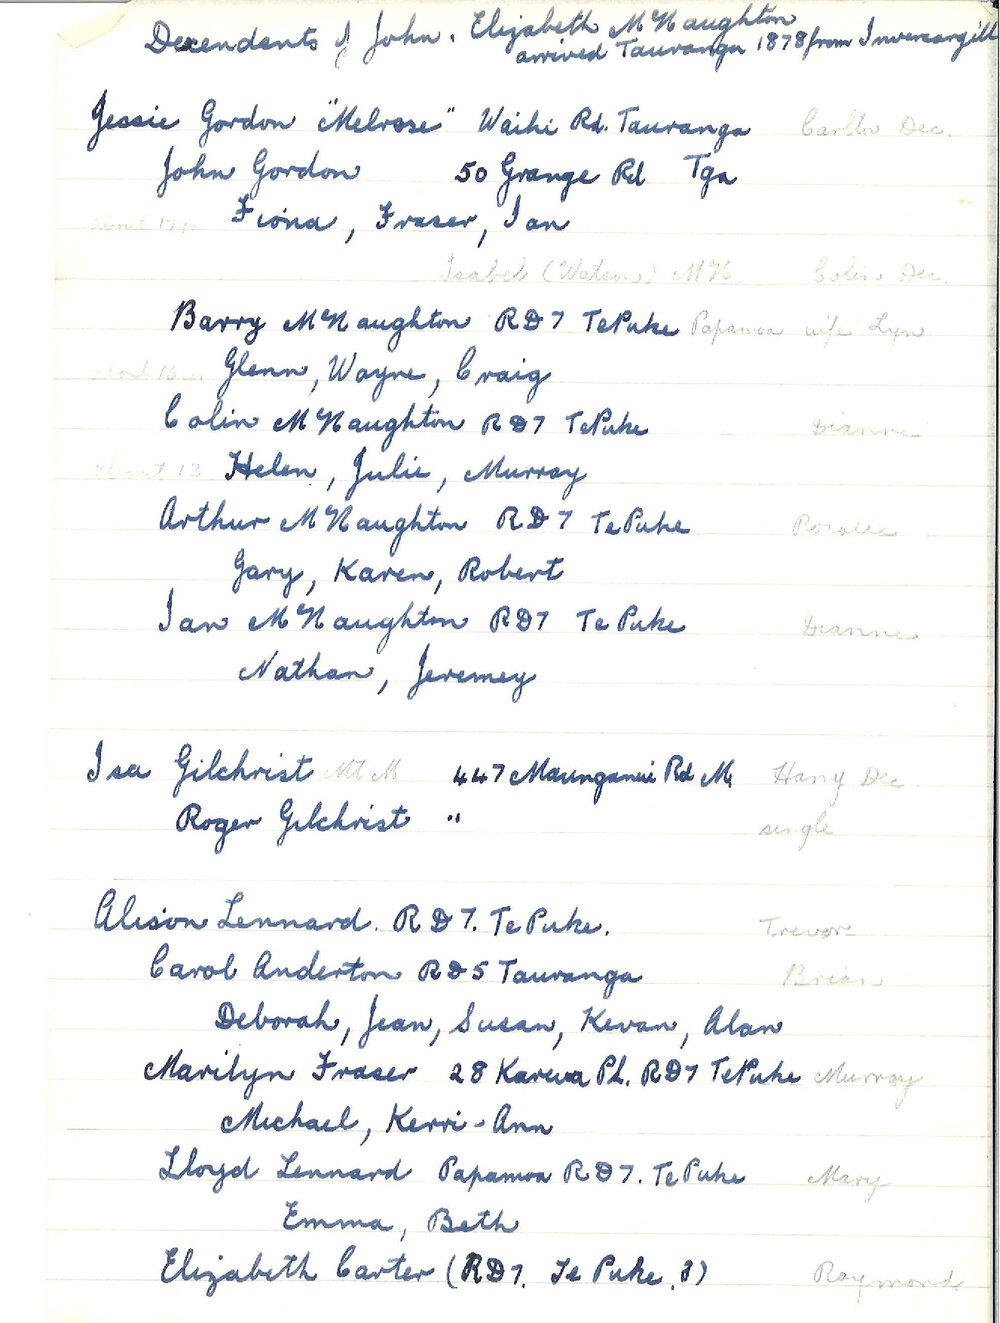 Decendants of John. Elizabeth McNaughton
arrived Tauranga 1878 from Invercargill
Jessie Gordon "Melrose" Waihi Rd. Tauranga Dec.
John Gordon 50 Grange Rd Tga
about 17 Fiona, Fraser, Ian
Isabel (Watson) McN. Colin Dec.
Barry McNaughton RD7 TePuke Papamoa wife Lyn
Glenn, Wayne, Craig
Colin McNaughton RD7 TePuke Dianne
about 13 Helen, Julie, Murray
Arthur McNaughton RD7 TePuke Rosalee
Gary, Karen, Robert
Ian McNaughton RD7 Te Puke Dianne
Nathan, Jeremey
Isa Gilchrist Mt M 447 Maunganui Rd M Harry Dec
Roger Gilchrist " single
Alison Lennard. RD7. Te Puke. Trevor
Carol Anderton RD5 Tauranga Brian
Deborah, Jean, Susan, Kevan, Alan
Marilyn Fraser 28 Karewa Pl. RD7 TePuke Murray
Michael, Kerri-Ann
Lloyd Lennard Papamoa RD7. Te Puke Mary
Emma, Beth
Elizabeth Carter (RD7. Te Puke.?) Raymond